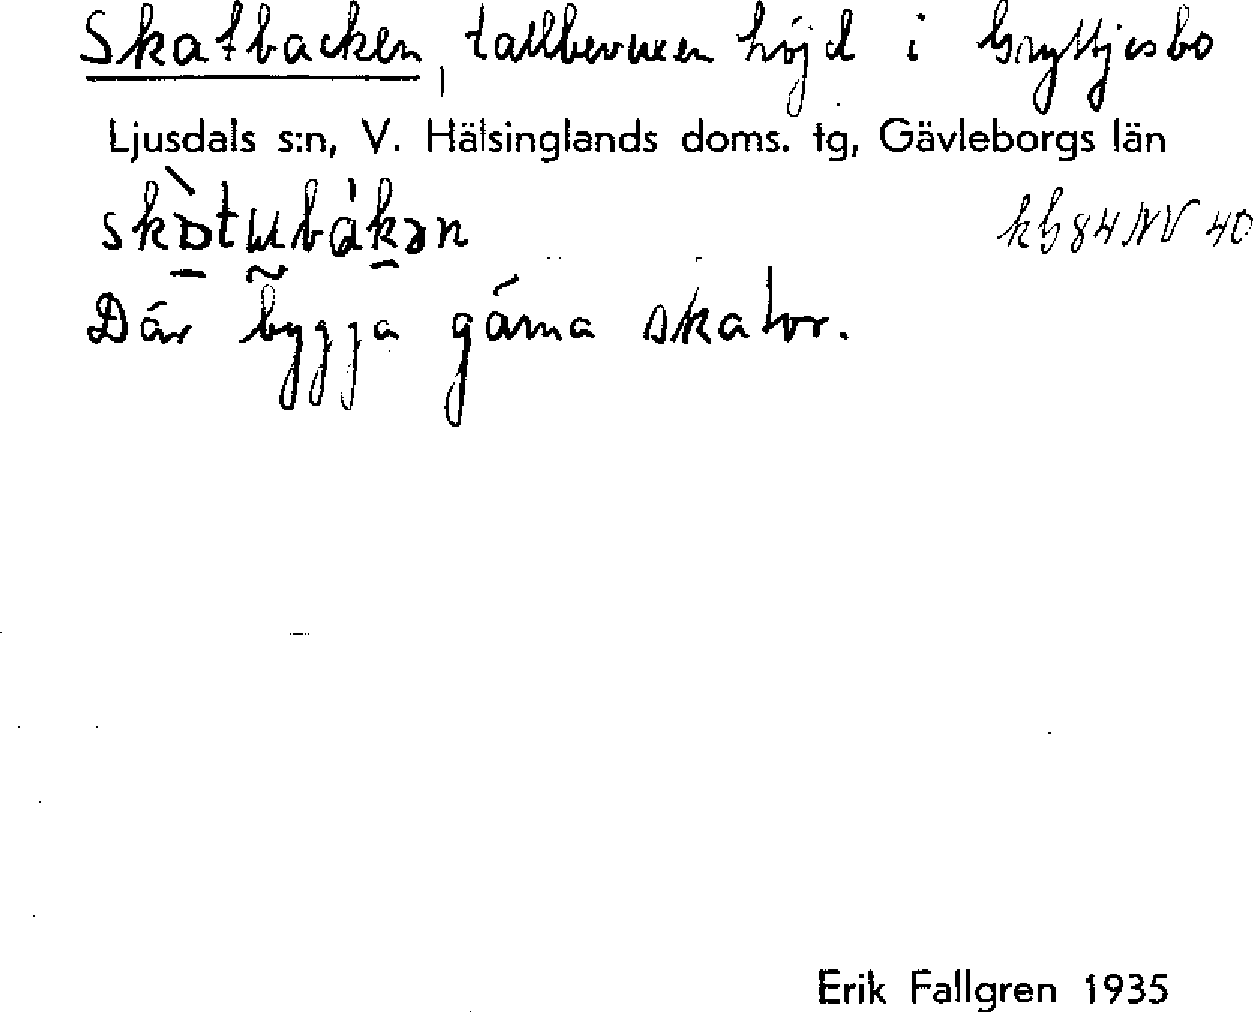 Skatbacken, tallbevuxen höjd i Gryttjesbo
Ljusdals s:n, V. Hälsinglands doms. tg, Gävleborgs län
kb 84 NV 40
Där bygga gärna skator.
Erik Fallgren 1935